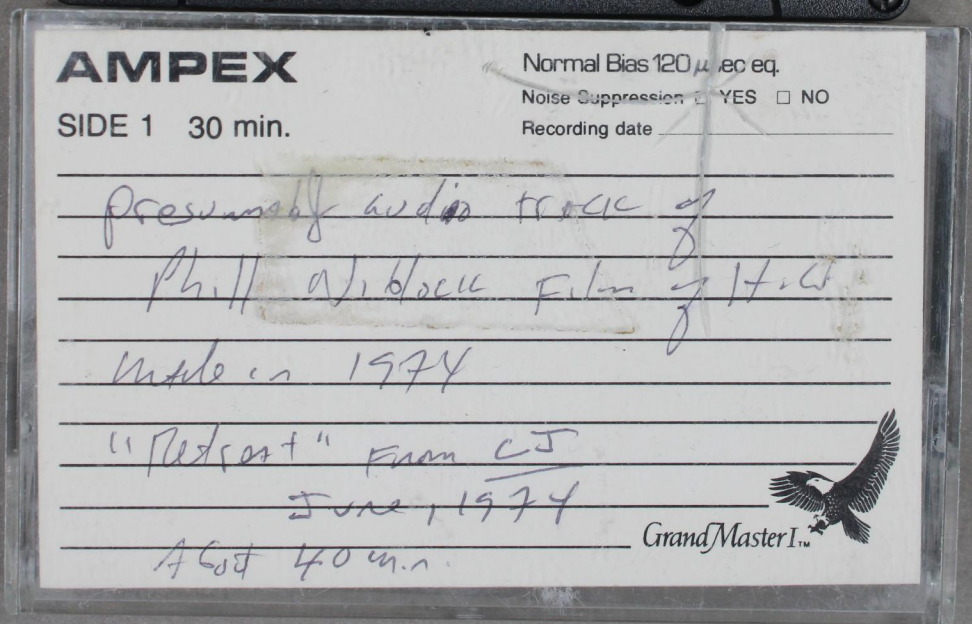 AMPEX
Normal Bias 120 µsec eq.
Noise Suppression □ YES □ NO
SIDE 1 30 min.
Recording date
Presumably audio track of
Phill Niblock Film of
made in 1974
"Retreat" From CJ
June, 1974
About 40 min.
Grand Master I™